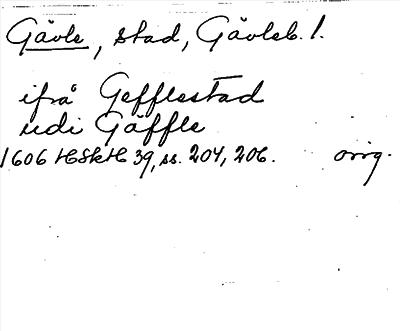 Gävle, stad, Gävleb. l.
ifrå Gefflestad
udi Gäffle
1606 HSkH 39, ss. 204, 206. orig.